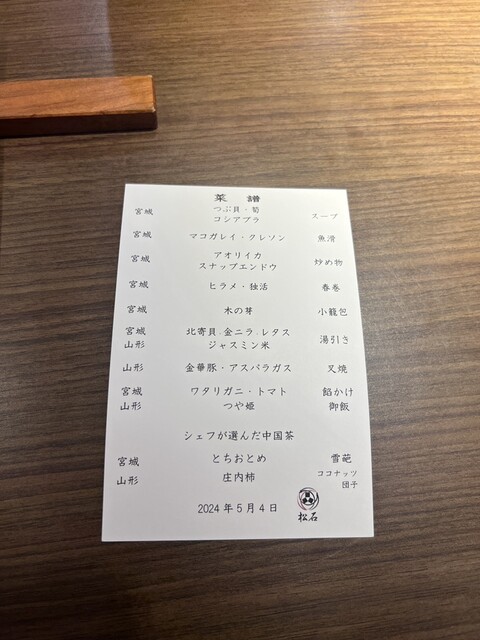 菜 譜
宮城 つぶ貝・筍 コシアブラ スープ
宮城 マコガレイ・クレソン 魚滑
宮城 アオリイカ スナップエンドウ 炒め物
宮城 ヒラメ・独活 春巻
宮城 木の芽 小籠包
宮城 北寄貝.金ニラ.レタス 湯引き
山形 ジャスミン米
山形 金華豚・アスパラガス 叉焼
宮城 ワタリガニ・トマト 餡かけ
山形 つや姫 御飯
シェフが選んだ中国茶
宮城 とちおとめ 雪葩
山形 庄内柿 ココナッツ 団子
2024年5月4日
松石